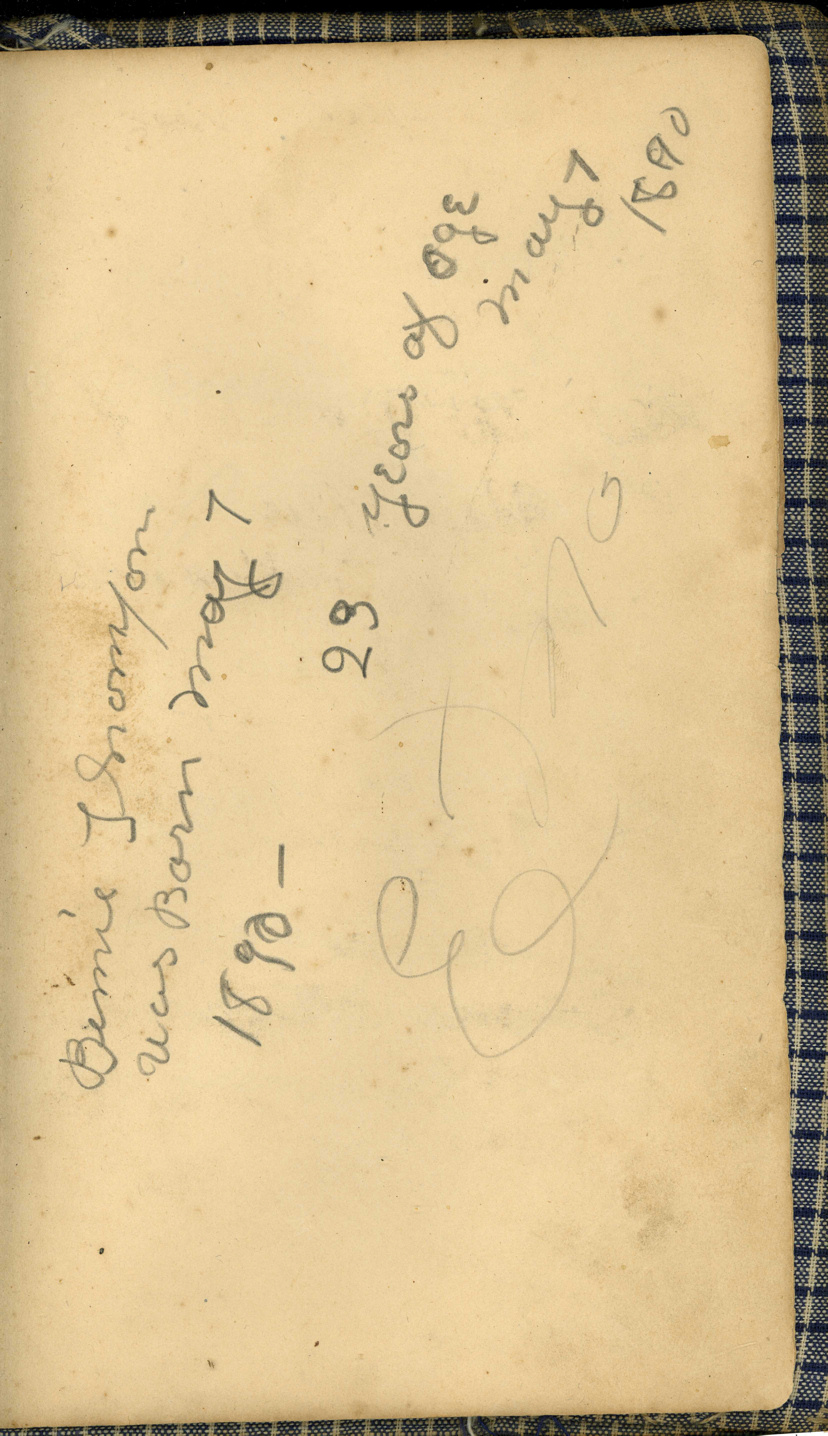 Binnie Thompson
Was Born May 7
1890 —
29 Years of age
May 7
1890